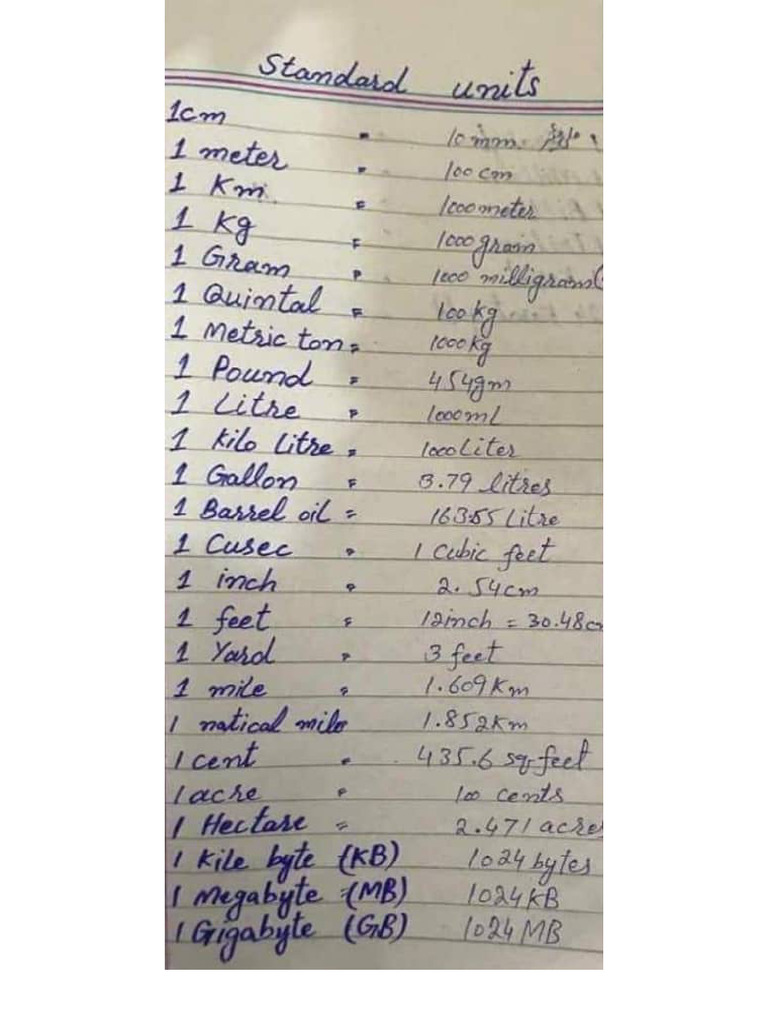 Standard units
1cm = 10mm
1 meter = 100cm
1 Km = 1000meter
1 Kg = 1000gram
1 Gram = 1000 milligram
1 Quintal = 100kg
1 Metric ton = 1000kg
1 Pound = 454gm
1 Litre = 1000ml
1 Kilo litre = 1000Liter
1 Gallon = 3.79 litres
1 Barrel oil = 163.55 Litre
1 Cusec = 1 Cubic feet
1 inch = 2.54cm
1 feet = 12inch = 30.48c
1 Yard = 3 feet
1 mile = 1.609Km
1 natical mile 1.852Km
1 cent = 435.6 sq feet
1 acre = 100 cents
1 Hectare = 2.471 acres
1 Kile byte (KB) 1024 bytes
1 Megabyte = (MB) 1024KB
1 Gigabyte (GB) 1024 MB